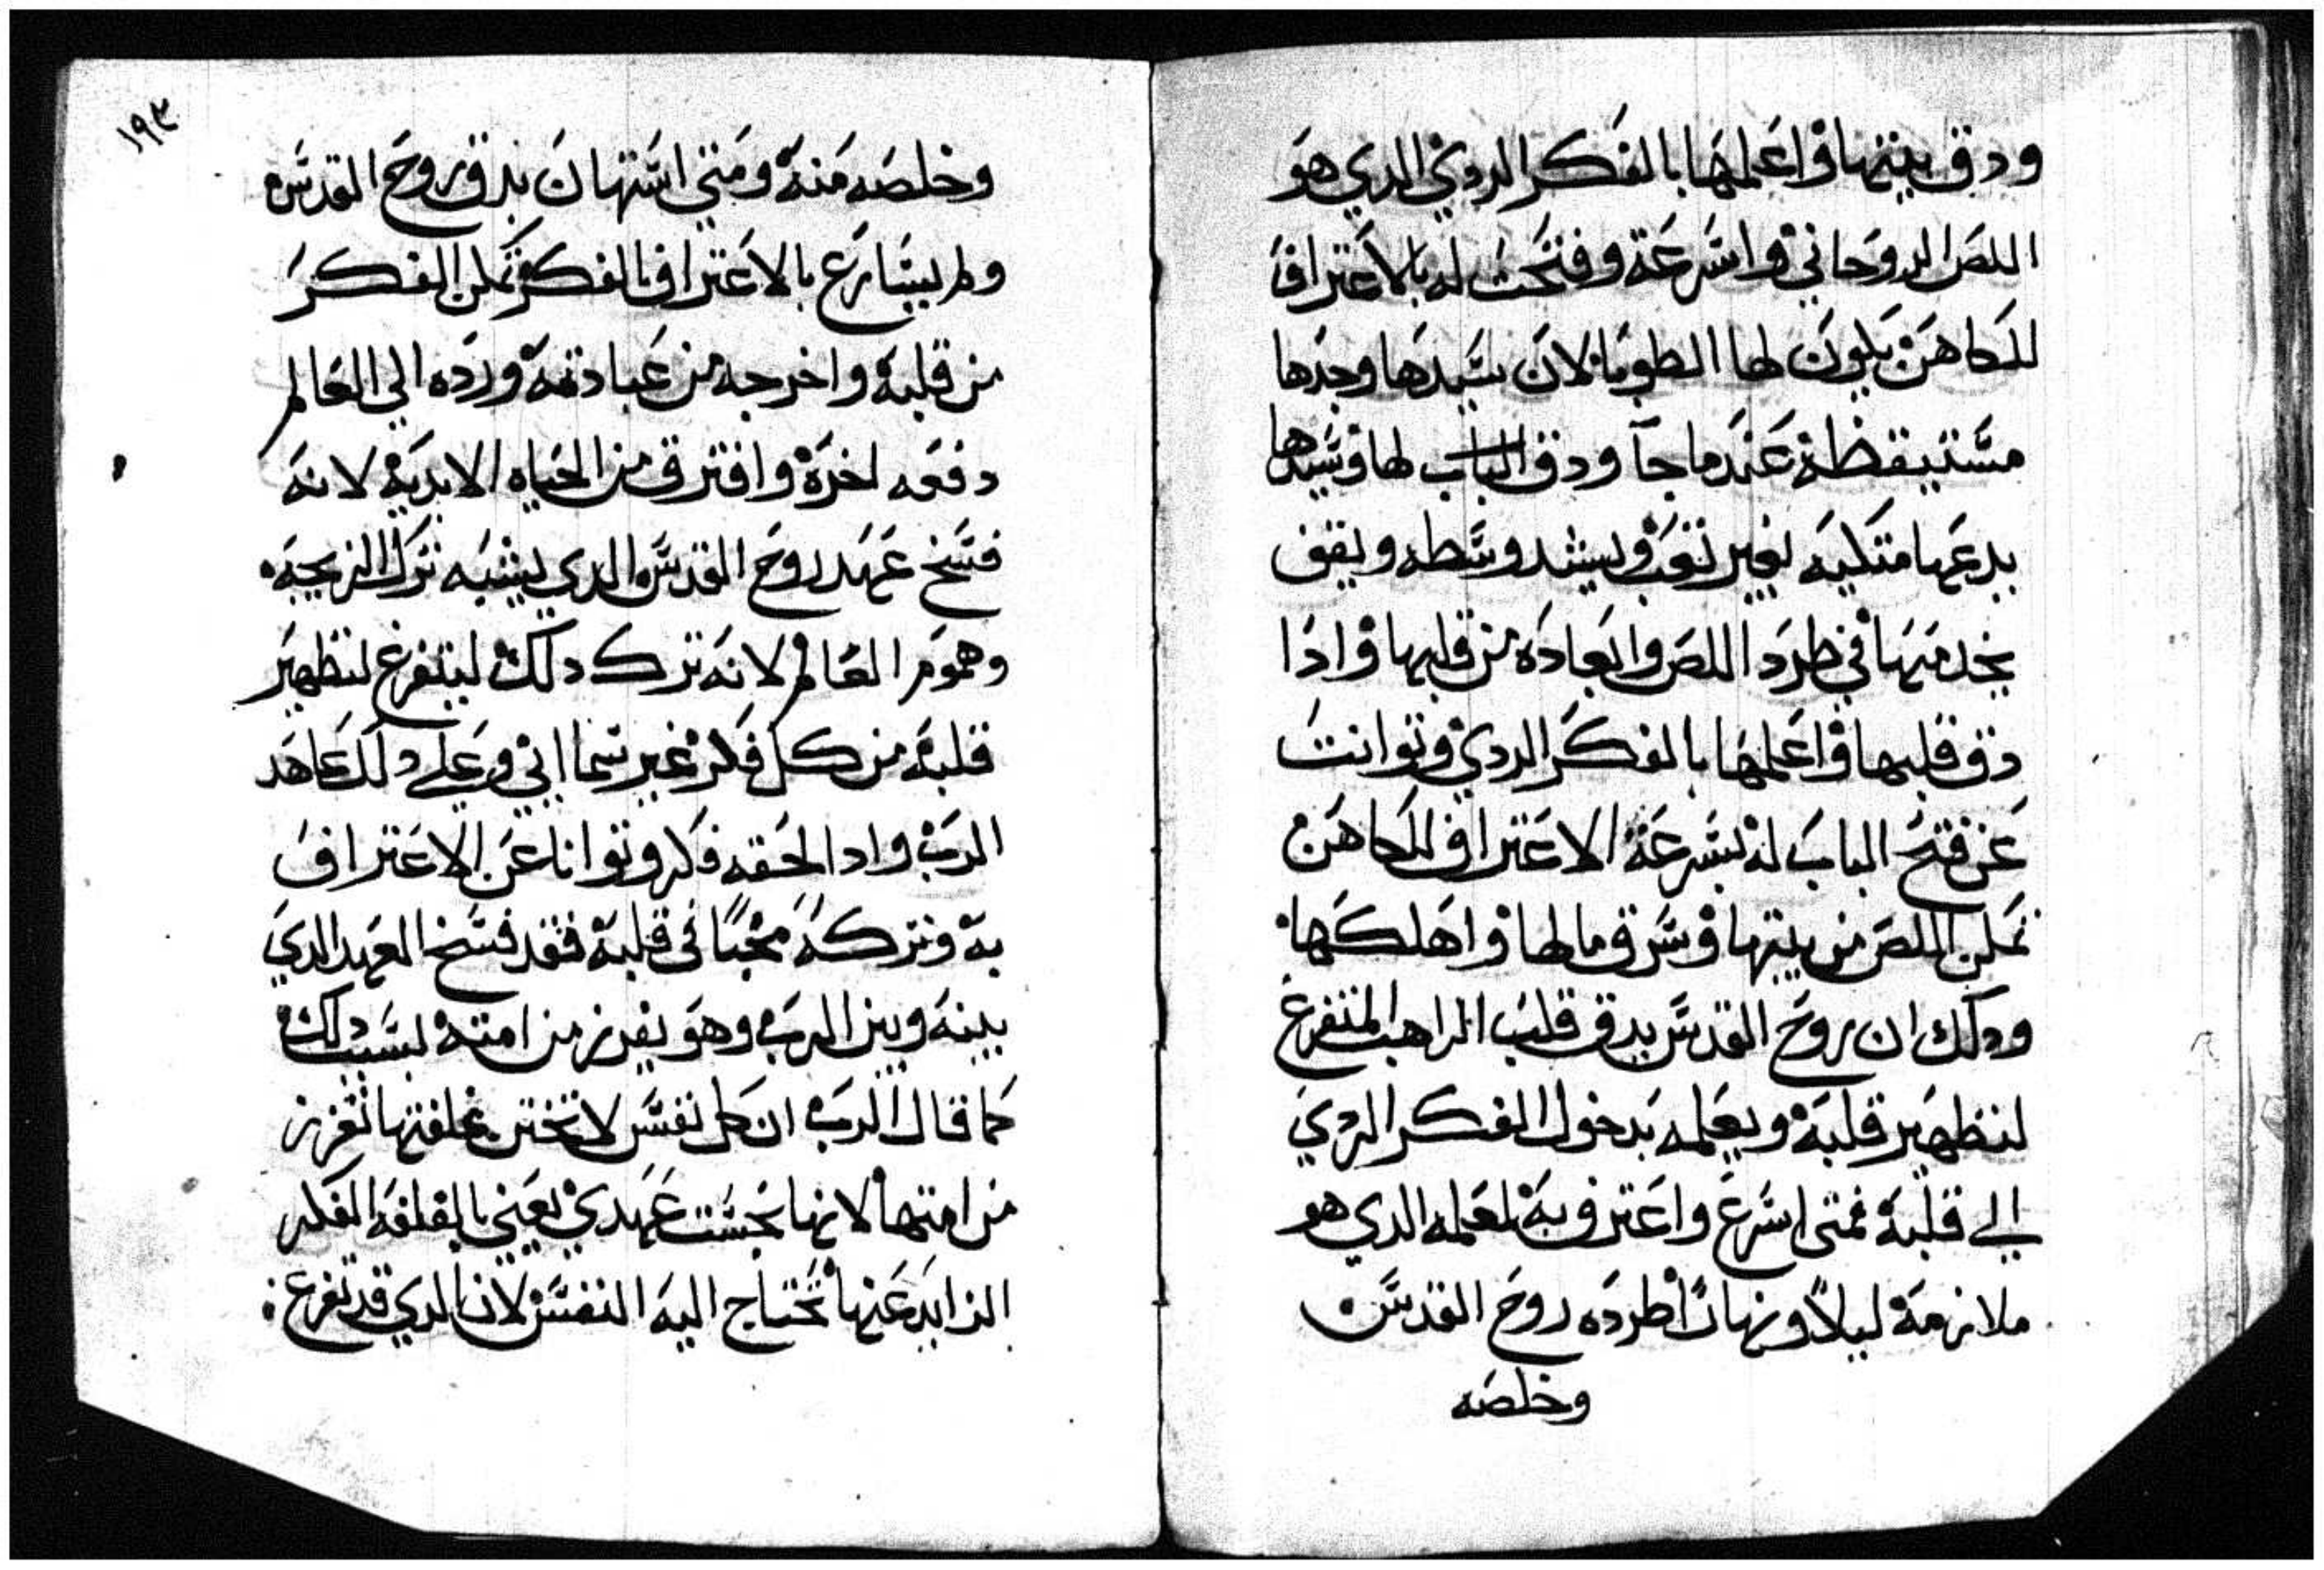 ودق بيتها واعلمها بالفكر الردي الدي هو
اللص الروحاني واسرعة وفتحت له بالاعتراف
للكاهن يكون لها الطوبا لان سيدها وجدها
مستيقظة عندما جآ ودق الباب لها وسيدها
يدعها متكيه بغير تعب ويشد وسطه ويقف
يخدمها في طرد اللص وابعاده من قلبها وادا
دق قلبها واعلمها بالفكر الردي وتوانت
عن فتح الباب له بسرعة الاعتراف للكاهن
تمكن اللص من بيتها وسرق مالها واهلكها
ودلك ان روح القدس يدق قلب الراهب المتفرغ
لتطهير قلبه ويعلمه بدخول الفكر الردي
الي قلبه فمتى اسرع واعترف به لمعلمه الدي هو
ملازمه ليلاً ونهاراً طرده روح القدس
وخلصه
١٩٣
وخلصه منه ومتي استهان بدق روح القدس
ولم يسارع بالاعتراف بالفكر تمكن الفكر
من قلبه واخرجه من عبادته ورده الي العالم
دفعه اخرة وافترق من الحياه الابديه لانه
فسخ عهد روح القدس الدي يشبه ترك الزيجه
وهموم العالم لانه ترك دلك ليتفرغ لتطهير
قلبه من كل فكر غير سماائي وعلي دلك عاهد
الرب وادا لحقه فكر وتوانا عن الاعتراف
به وتركه مخبًا في قلبه فقد فسخ العهد الدي
بينه وبين الرب وهو يفرز من امته بسبب دلك
كما قال الرب ان كل نفس لا تختن بغلفتها تفرز
من امتها لانها نجست عهدي يعني بالغلفه الفكر
الزايد عنها تحتاج اليه النفس لان الدي قد تفرغ